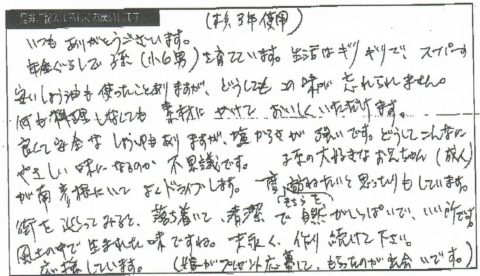 (約3年使用)
いつもありがとうございます。
年金ぐらしで孫(小6男)を育てています。生活はギリギリで、スーパーの
安いしょう油も使ったことありますが、どうしてもこの味が忘れられません。
何も料理しなくても素材にかけておいしくいただけます。
良くて安全なしょうゆもありますが、塩からさが強いです。どうしてこんなに
やさしい味になるのか不思議です。子孫の大好きなお兄ちゃん(成人)
が南彦根にいてよくドライブします。一度訪ねたいと思ったりもしています。
街を巡ってみると、落ち着いて、清潔で自然がいっぱいで、いい所です。
風土の中で生まれた味ですね。末永く、作り続けて下さい。
応援しています。(娘がプレゼント応募して、もらったのが出会いです。)